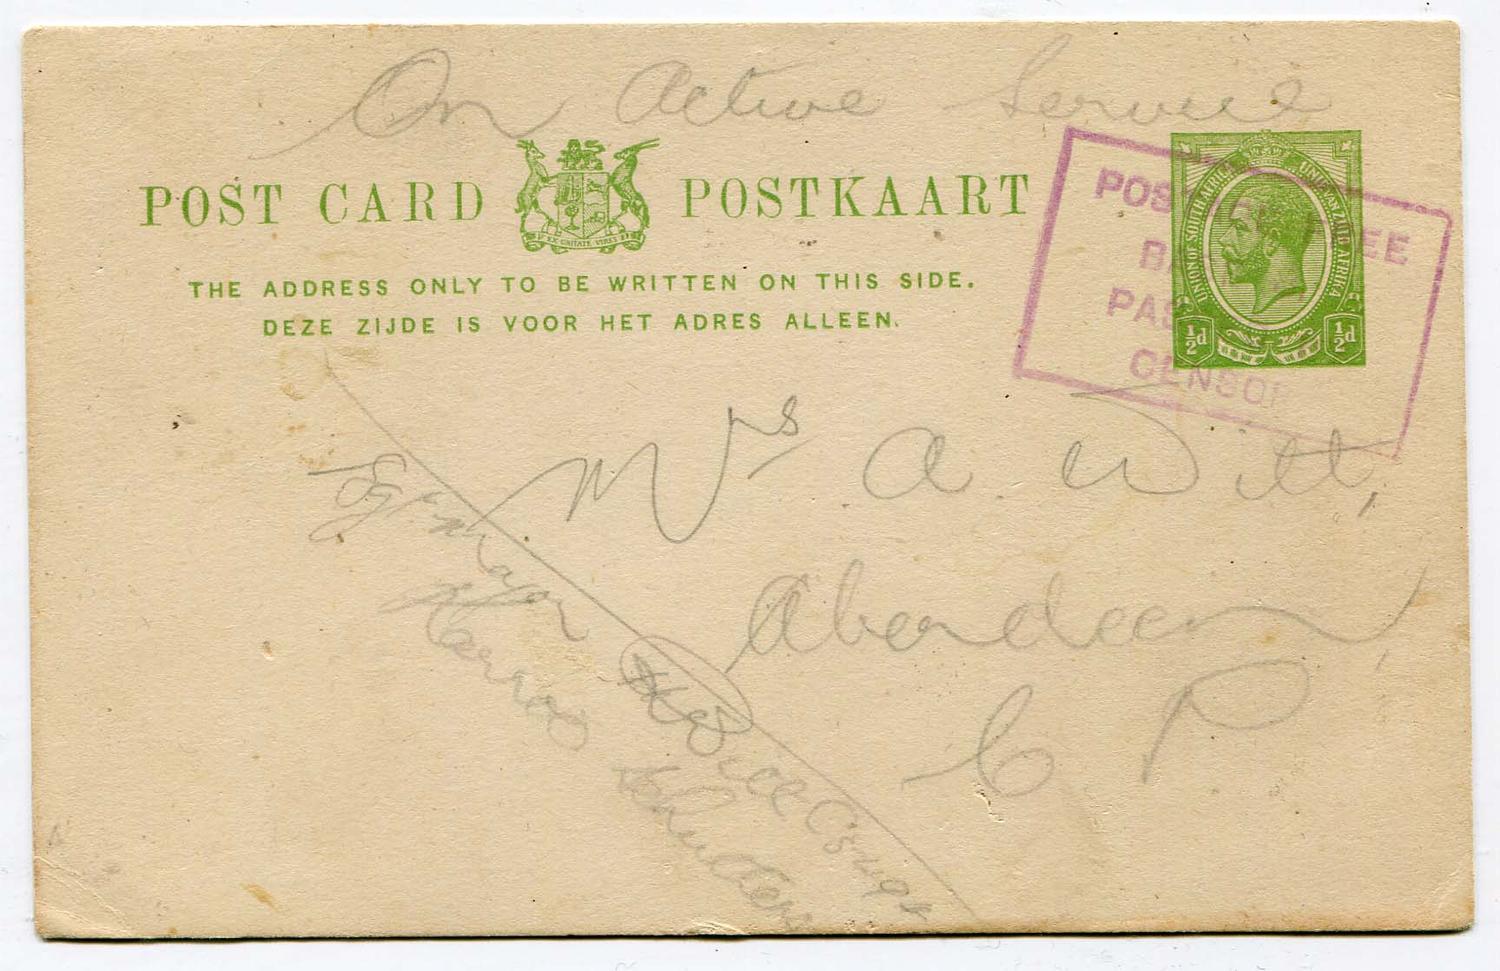 On Active Service
POST CARD POSTKAART
EX UNITATE VIRES
THE ADDRESS ONLY TO BE WRITTEN ON THIS SIDE.
DEZE ZIJDE IS VOOR HET ADRES ALLEEN.
UNION OF SOUTH AFRICA UNIE VAN ZUID AFRIKA
½d ½d
CENSOR
Mrs A Witt,
Aberdeen,
C P
Karroo Schutters